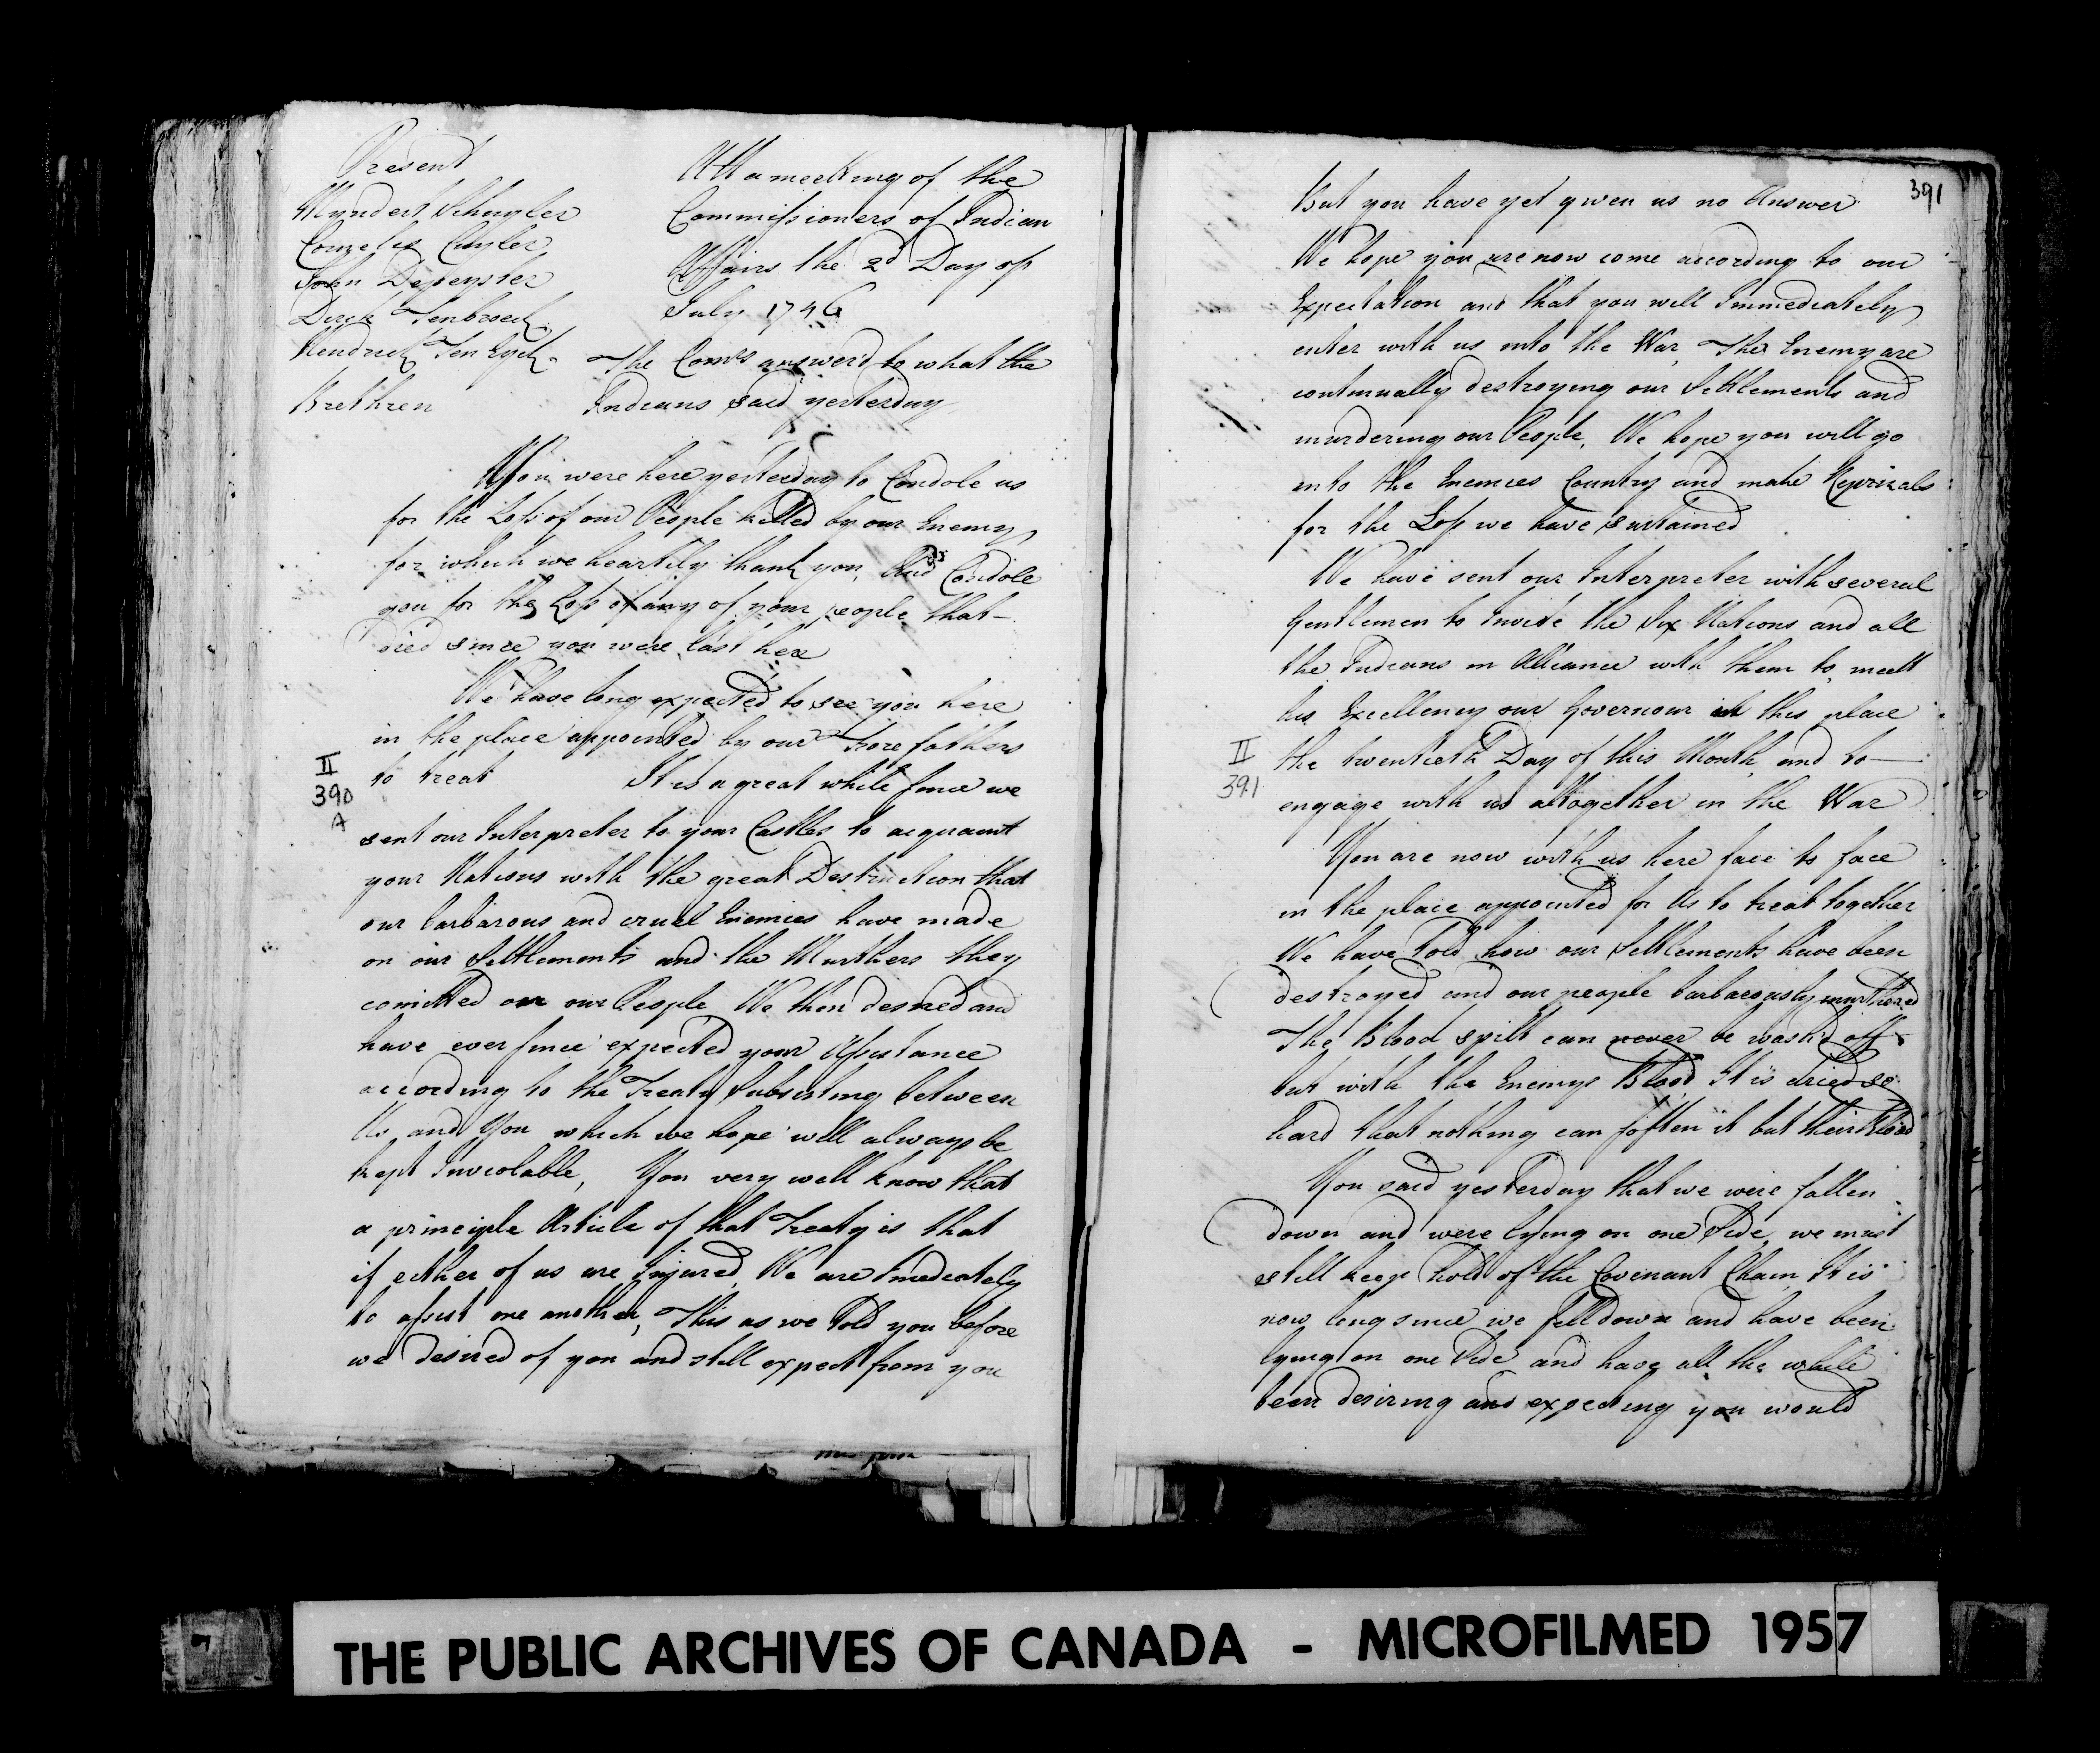 Present
Myndert Schuyler
Cornelis Cuyler
John Depeyster
Dirck Tenbroeck
Hendrick Ten Eyck
Att a meetting of the
Commissioners of Indian
Affairs the 2d Day of
July 1746
The Comrs answer'd to what the
Indians said yesterday
Brethren
You were here yesterday to Condole us
for the Loss of our People killed by our Enemy
for which we heartily thank you, And Condole
you for the Loss of any of your people that
died since you were last here
We have long expected to see you here
in the place appointed by our Fore fathers
to treat It is a great while since we
II
390
A
sent our Interpreter to your Castles to acquaint
your Nations with the great Destruction that
our barbarous and cruel Enemies have made
on our Settlements and the Murthers they
comitted on our People We then desired and
have ever since expected your Assistance
according to the Treaty Subsisting between
Us and You which we hope will always be
kept Inviolable, You very well know that
a principle Article of that Treaty is that
if either of us are Injured We are Imediately
to assist one another, This as we Told you before
we desired of you and still expect from you
391
But you have yet given us no Answer
We hope you are now come according to our
Expectation and that you will Immediately
enter with us into the War The Enemy are
continually destroying our Settlements and
murdering our People, We hope you will go
into the Enemies Country and make Reprizals
for the Loss we have sustained
We have sent our Interpreter with several
Gentlemen to Invite the Six Nations and all
the Indians in Alliance with them to meett
his Excellency our Governour at this place
II
391
the twentieth Day of this Month and to
engage with us altogether in the War
You are now with us here face to face
in the place appointed for Us to treat together
We have Told how our Settlements have been
destroyed and our people barbarously murthered
The Blood spilt can never be wash'd off
but with the Enemys Blood It is dried so
hard that nothing can soften it but their Blood
You said yesterday that we were fallen
down and were lying on one Side we must
still keep hold of the Covenant Chain It is
now long since we fell down and have been
lying on one Side and have all the while
been desiring and expecting you would
THE PUBLIC ARCHIVES OF CANADA - MICROFILMED 1957